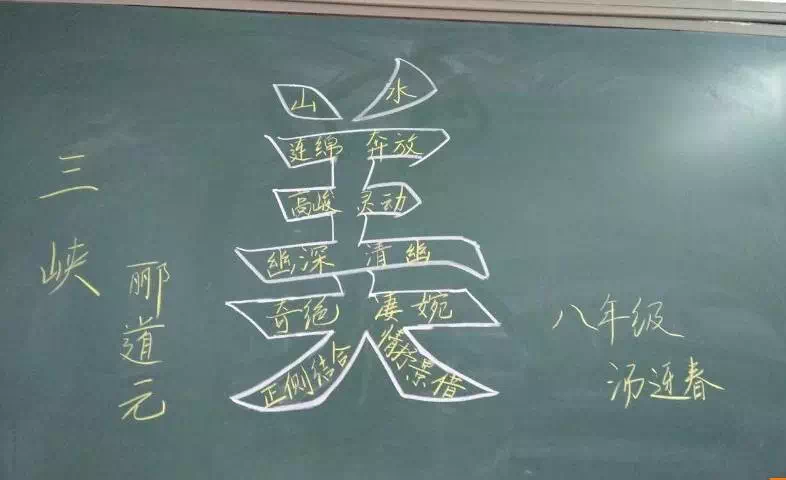 三峡
郦道元
山 水
连绵 奔放
高峻 灵动
幽深 清幽
奇绝 凄婉
正侧结合
借景抒情
八年级
汤迎春